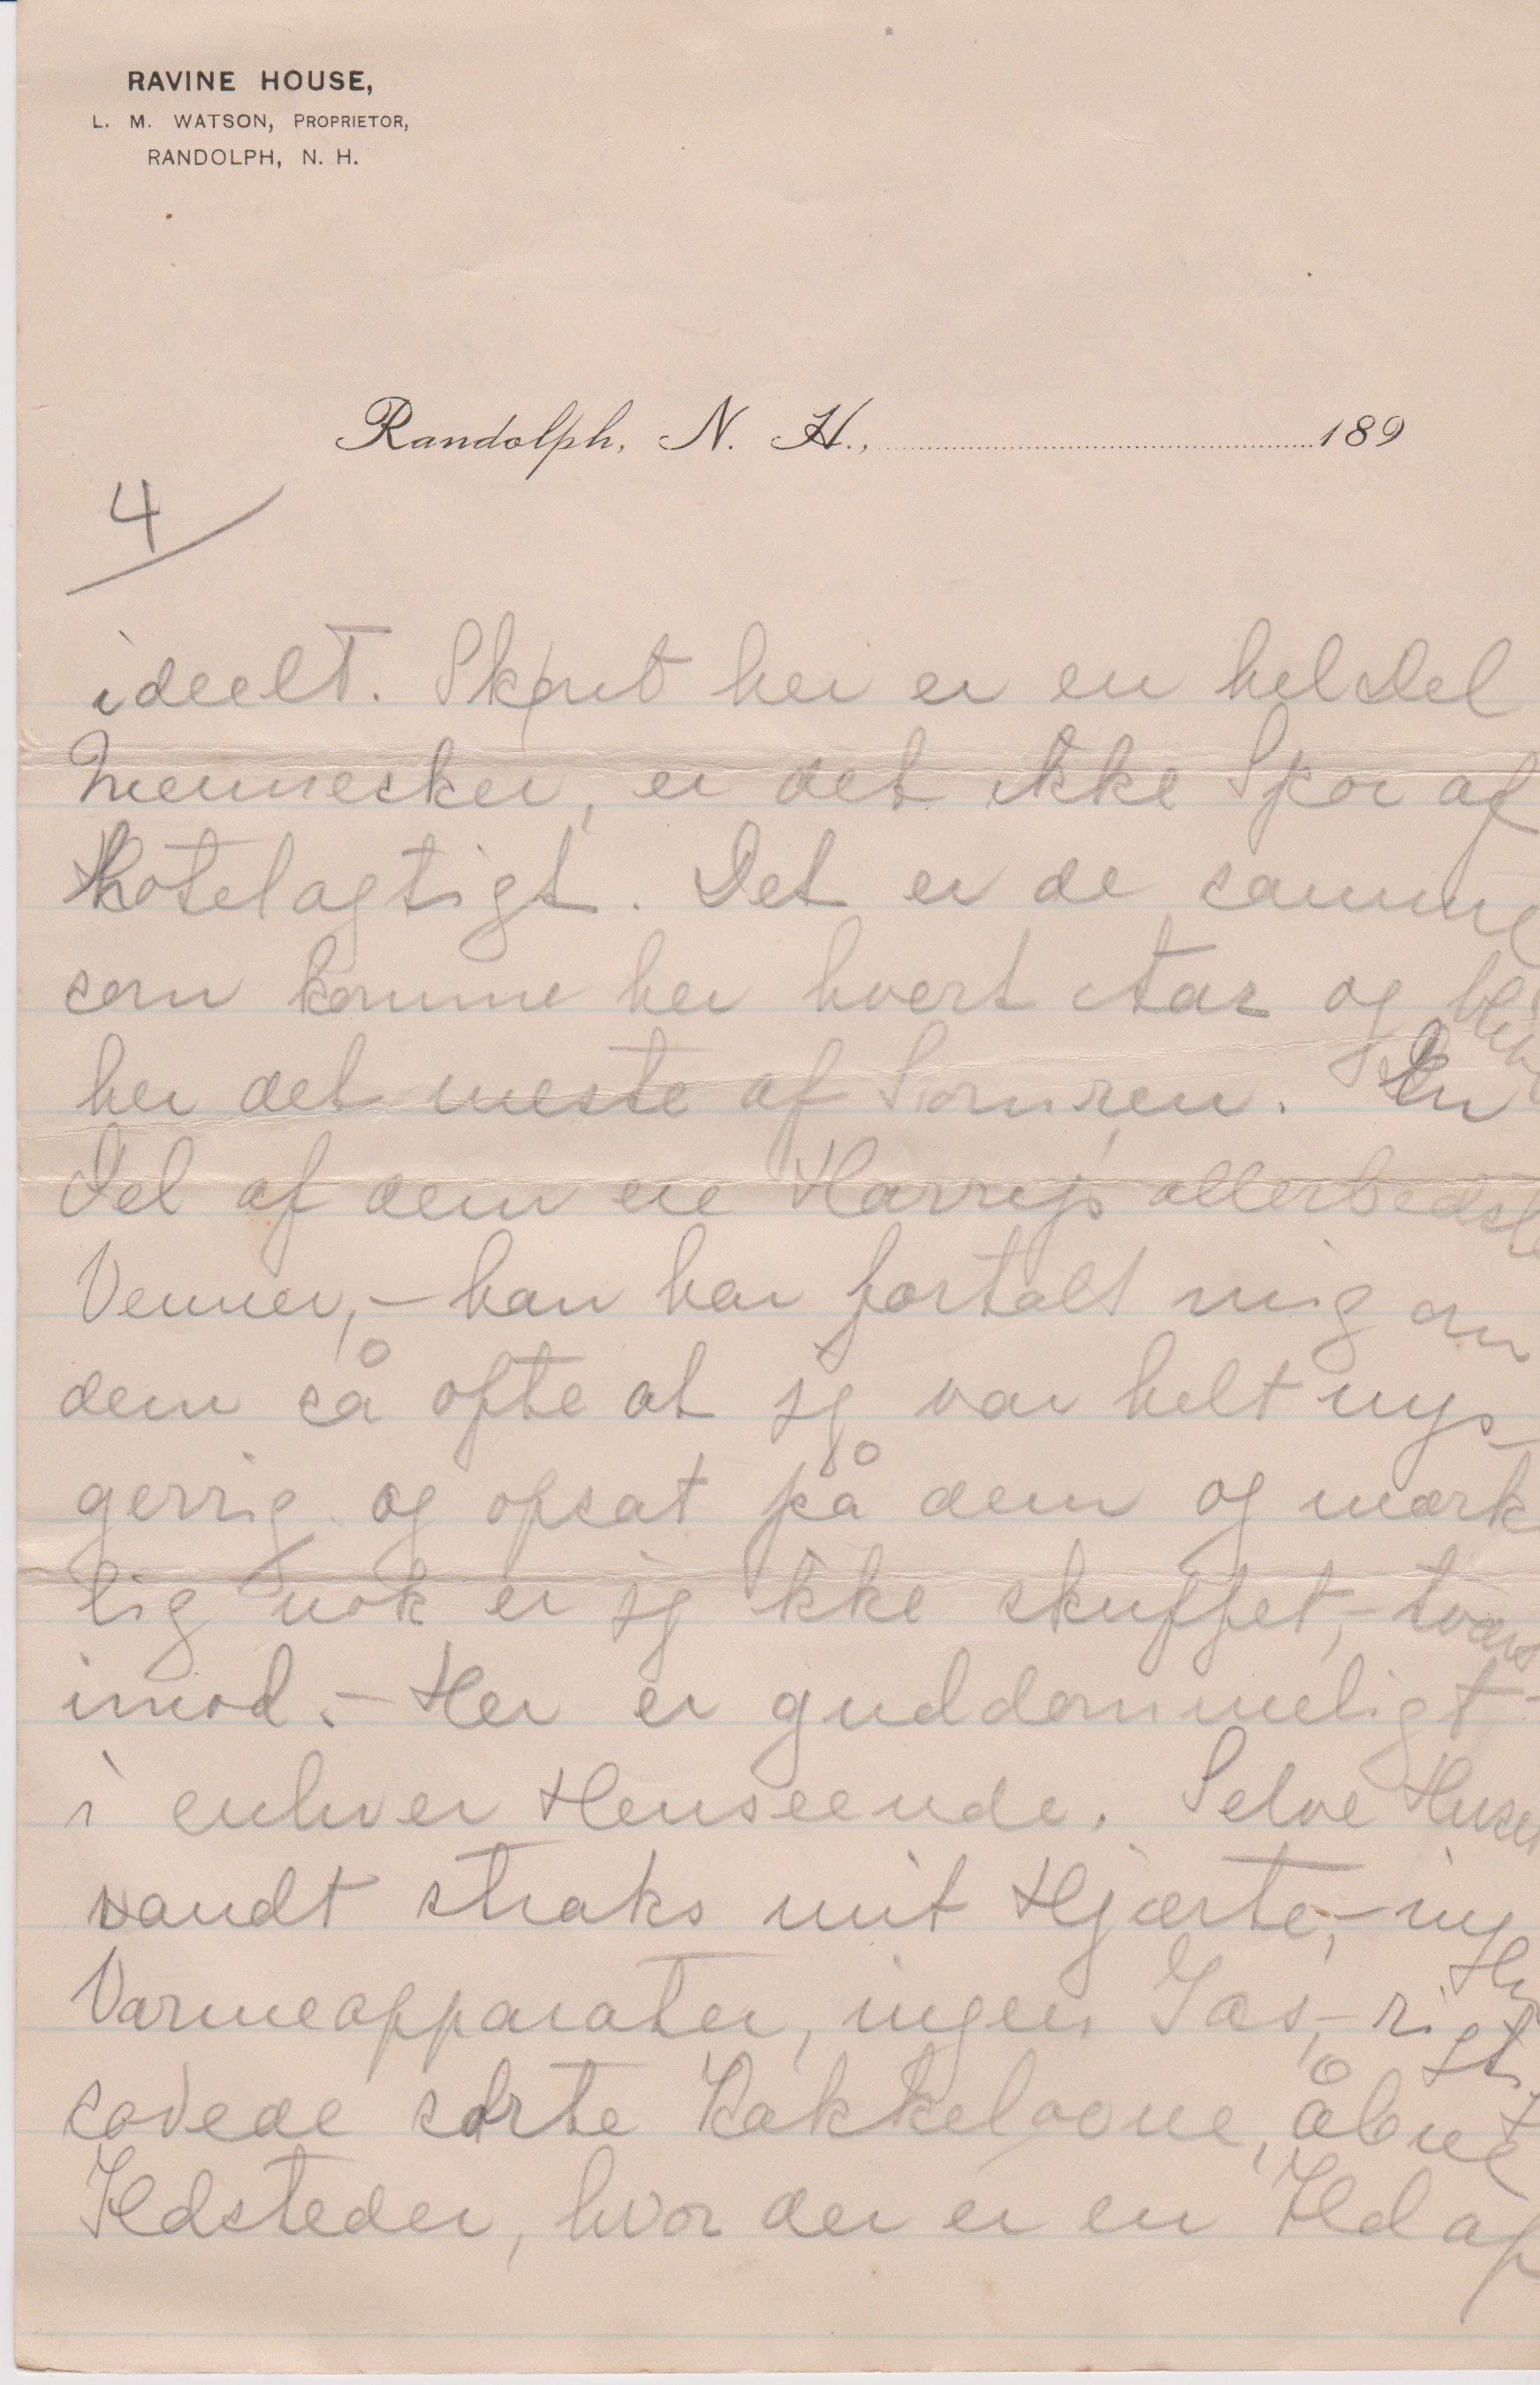 RAVINE HOUSE,
L. M. WATSON, PROPRIETOR,
RANDOLPH, N. H.
Randolph, N. H., 189
4
ideelt. Skønt her er en hel Del
Mennesker, er det ikke Spor af
hotelagtigt. Det er de samme
som komme her hvert Aar og blive
her det meste af Somren. En
Del af dem ere Harrys allerbedste
Venner, – han har fortalt mig om
dem så ofte at jg var helt nys-
gerrig og opsat på dem og mærk
lig nok er jg ikke skuffet, – tværs
imod. – Her er guddommeligt –
i enhver Henseende. Selve Huset
vandt straks mit Hjærte, –
Varmeapparater, ingen Gas, – rigtig
sodede sorte Kakkelovne, åbne
Ildsteder, hvor der er en Ild af